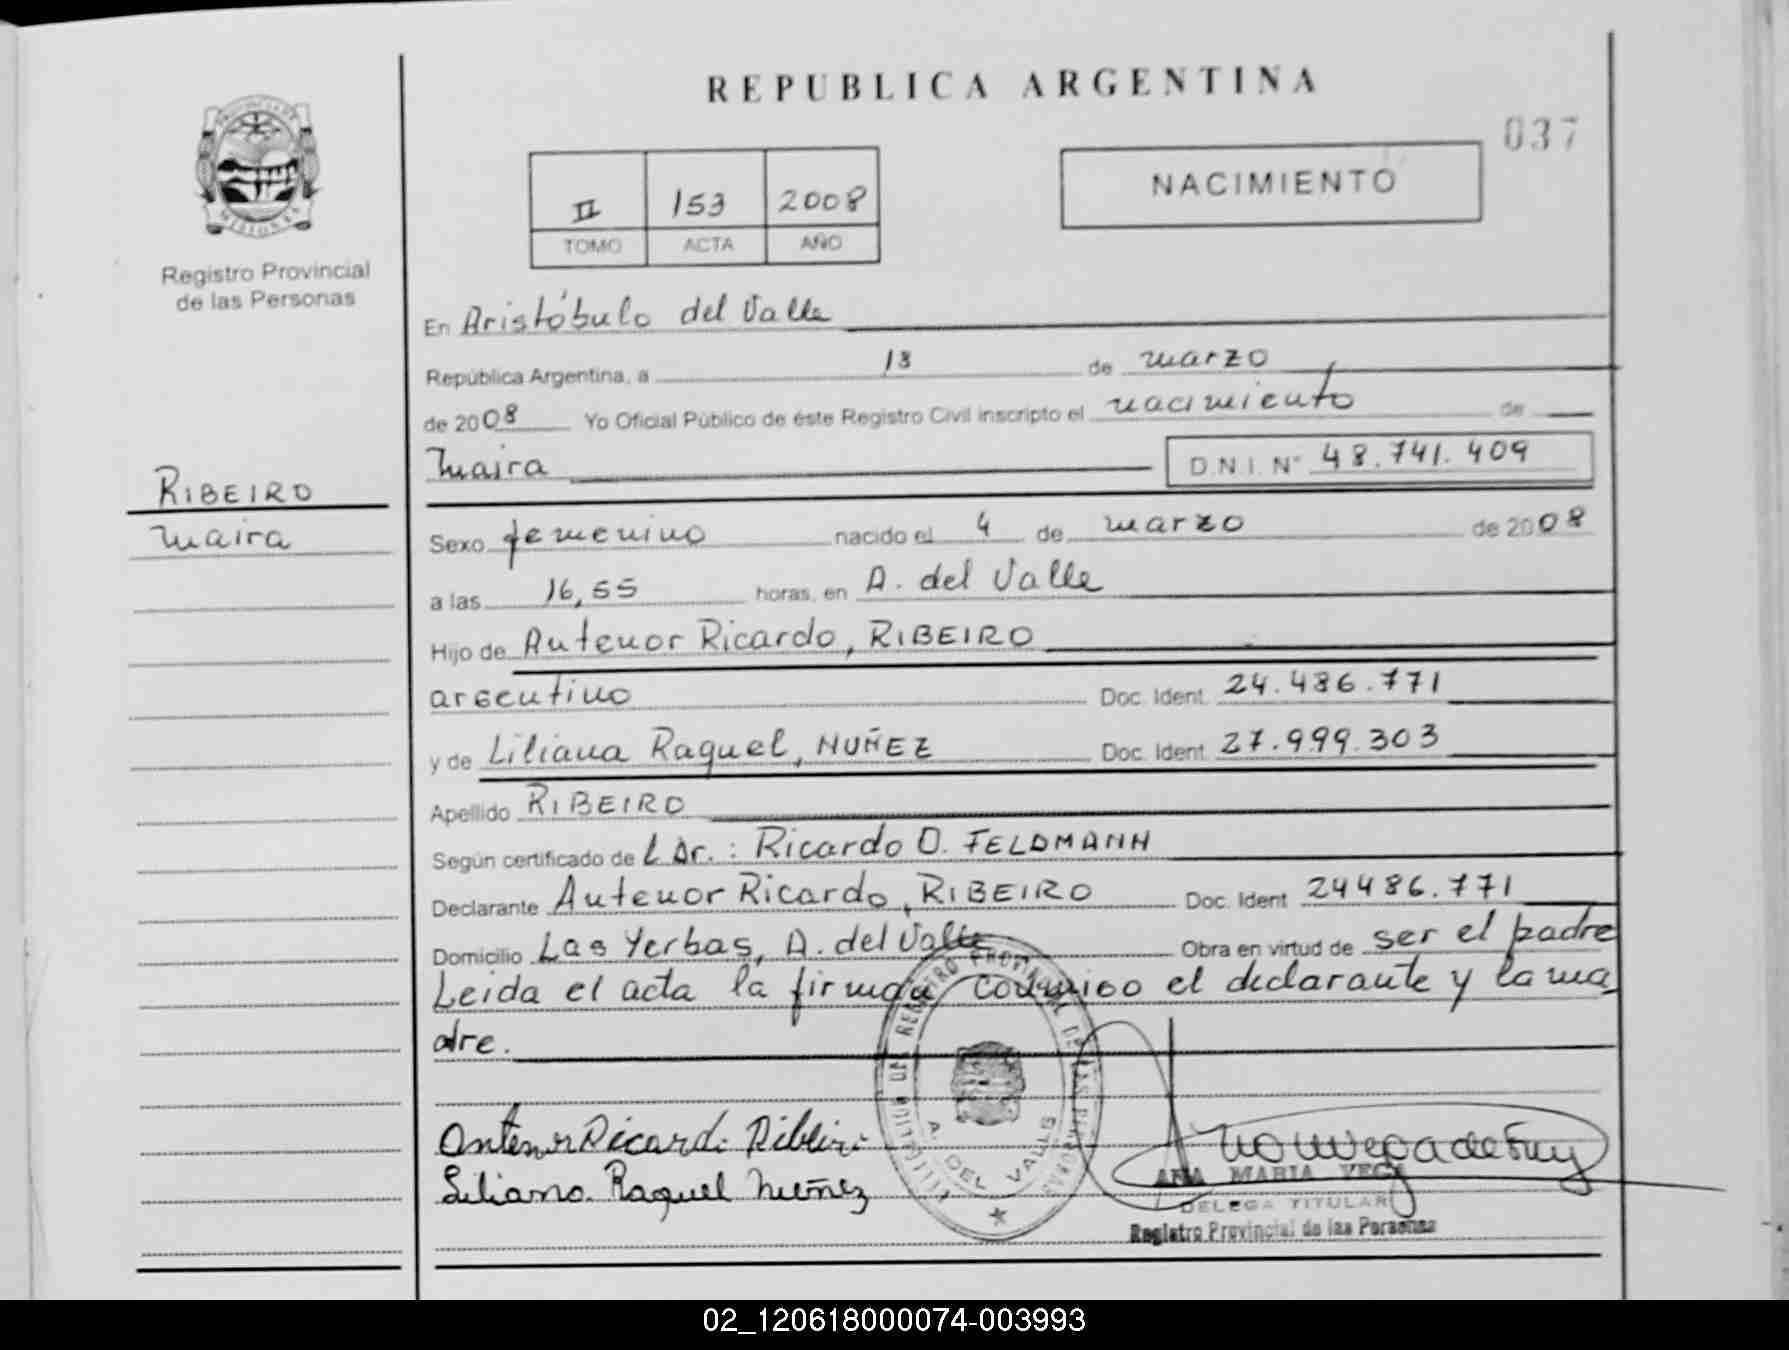 REPUBLICA ARGENTINA
037
II 153 2008
TOMO ACTA AÑO
NACIMIENTO
PROVINCIA DE
MISIONES
Registro Provincial
de las Personas
RIBEIRO
Maira
En Aristóbulo del Valle
República Argentina, a 13 de marzo
de 2008 Yo Oficial Público de éste Registro Civil inscripto el nacimiento de
Maira D.N.I. N° 48.741.409
Sexo femenino nacido el 4 de marzo de 2008
a las 16,55 horas, en A. del Valle
Hijo de Antenor Ricardo, RIBEIRO
argentino Doc. Ident. 24.486.771
y de Liliana Raquel, NUÑEZ Doc. Ident. 27.999.303
Apellido RIBEIRO
Según certificado de L Dr.: Ricardo O. FELDMANN
Declarante Antenor Ricardo, RIBEIRO Doc. Ident 24486.771
Domicilio Las Yerbas, A. del Valle Obra en virtud de ser el padre
Leida el acta la firman conmigo el declarante y la ma
dre.
Antenor Ricardo Ribeiro
Liliana Raquel Nuñez
REGISTRO PROVINCIAL DE LAS PERSONAS
A. DEL VALLE
ANA MARIA VEGA
DELEGA TITULAR
Registro Provincial de las Personas
02_120618000074-003993